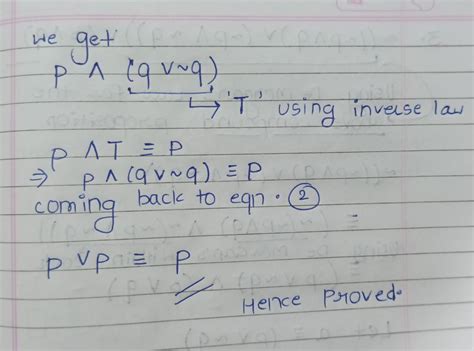 we get
p ∧ (q ∨ ~q)
↳ 'T' using inverse law
p ∧ T ≡ p
⇒ p ∧ (q ∨ ~q) ≡ p
coming back to eqn. ②
p ∨ p ≡ p
Hence proved.